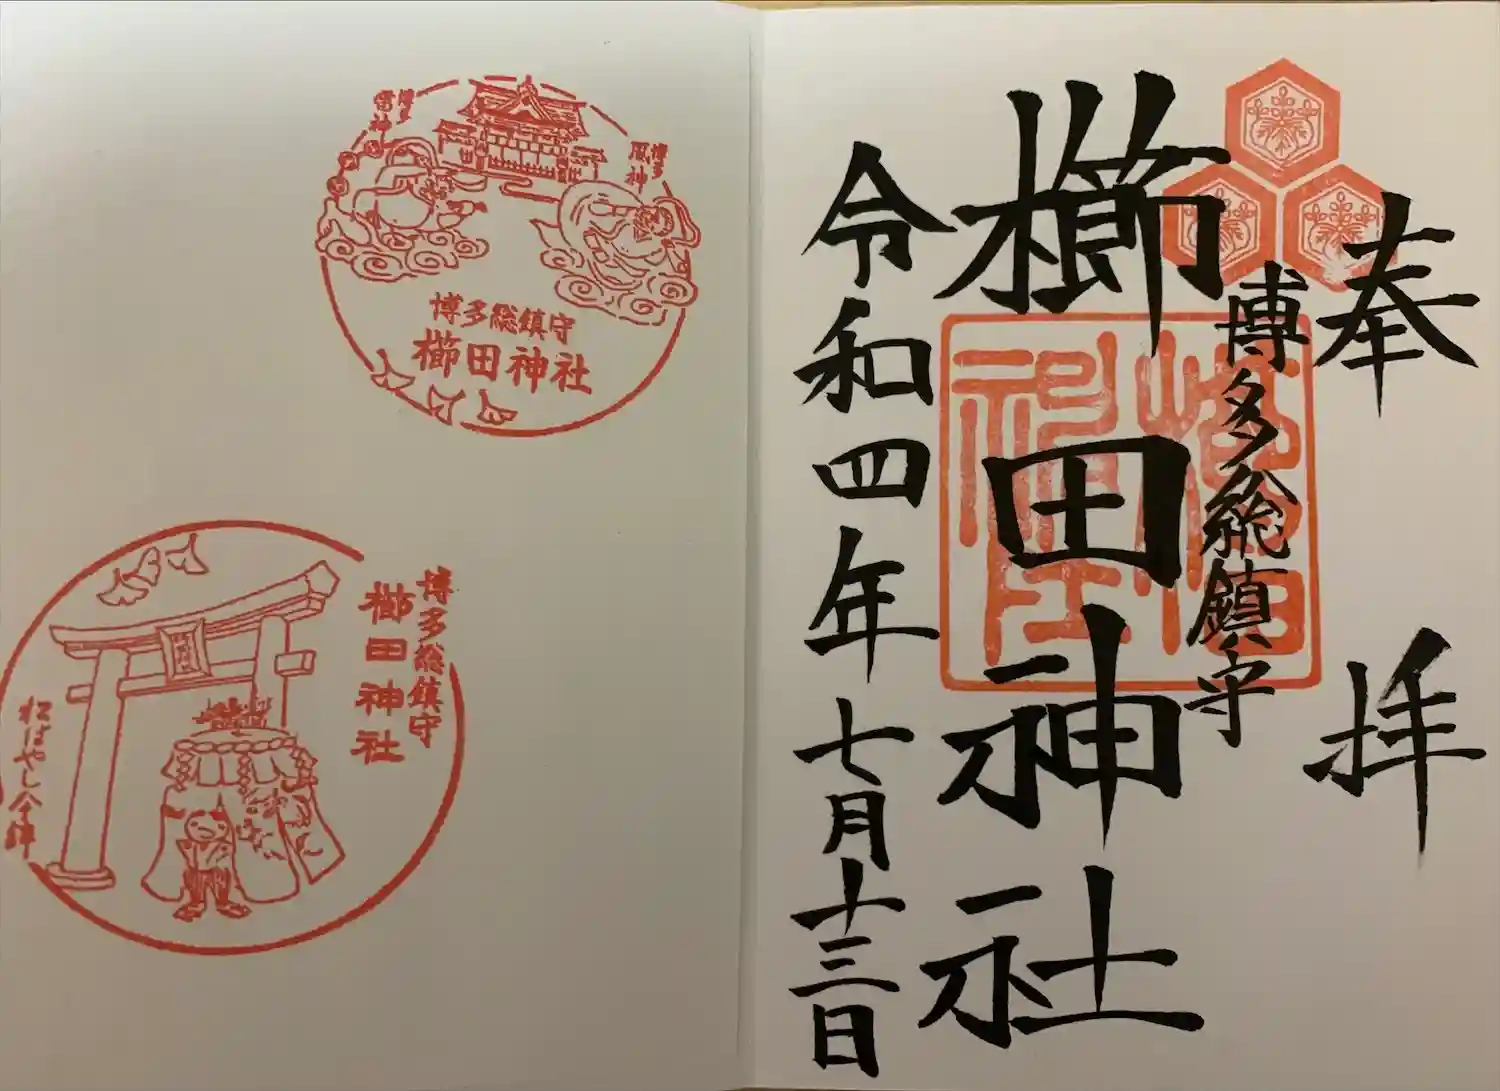 奉拝
博多総鎮守
櫛田神社
令和四年七月十三日
櫛田神社
博多
風神
博多
雷神
博多総鎮守
櫛田神社
博多総鎮守
櫛田神社